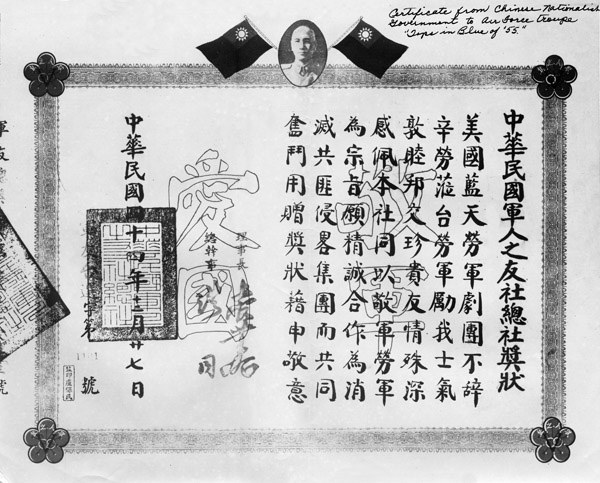 Certificate from Chinese Nationalist
Government to Air Force Troupe
"Tops in Blue of '55."
中華民國軍人之友社總社獎狀
美國藍天勞軍劇團不辭
辛勞蒞台勞軍勵我士氣
敦睦邦交珍貴友情殊深
感佩本社同以敬軍勞軍
為宗旨願精誠合作為消
滅共匪侵畧集團而共同
奮鬥用贈獎狀藉申敬意
敬軍
愛國
理事長
總幹事
中華民國四十四年十二月廿七日
字第
號